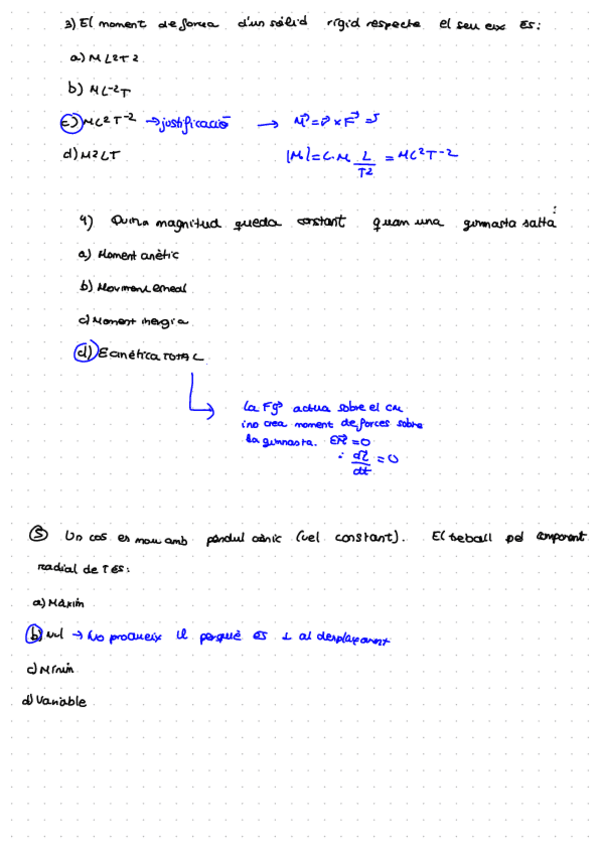 3) El moment de força d'un sòlid rígid respecte el seu eix És:
a) ML2T2
b) ML-2T
c) ML2T-2 → justificació → M = r × F =
d) M2LT
|M| = L·M L/T2 = ML2T-2
4) Quina magnitud queda constant quan una gimnasta salta:
a) Moment cinètic
b) Moviment lineal
c) Moment inèrgia
d) Ecinética TOTAL
La Fg actua sobre el CM
i no crea moment de forces sobre
la gimnasta. EM = 0
: dL/dt = 0
5) Un cos es mou amb pèndul cònic (vel constant). El treball pel component
radial de T És:
a) Màxim
b) nul → No produeix W perquè és ⊥ al desplaçament
c) Mínim
d) Variable